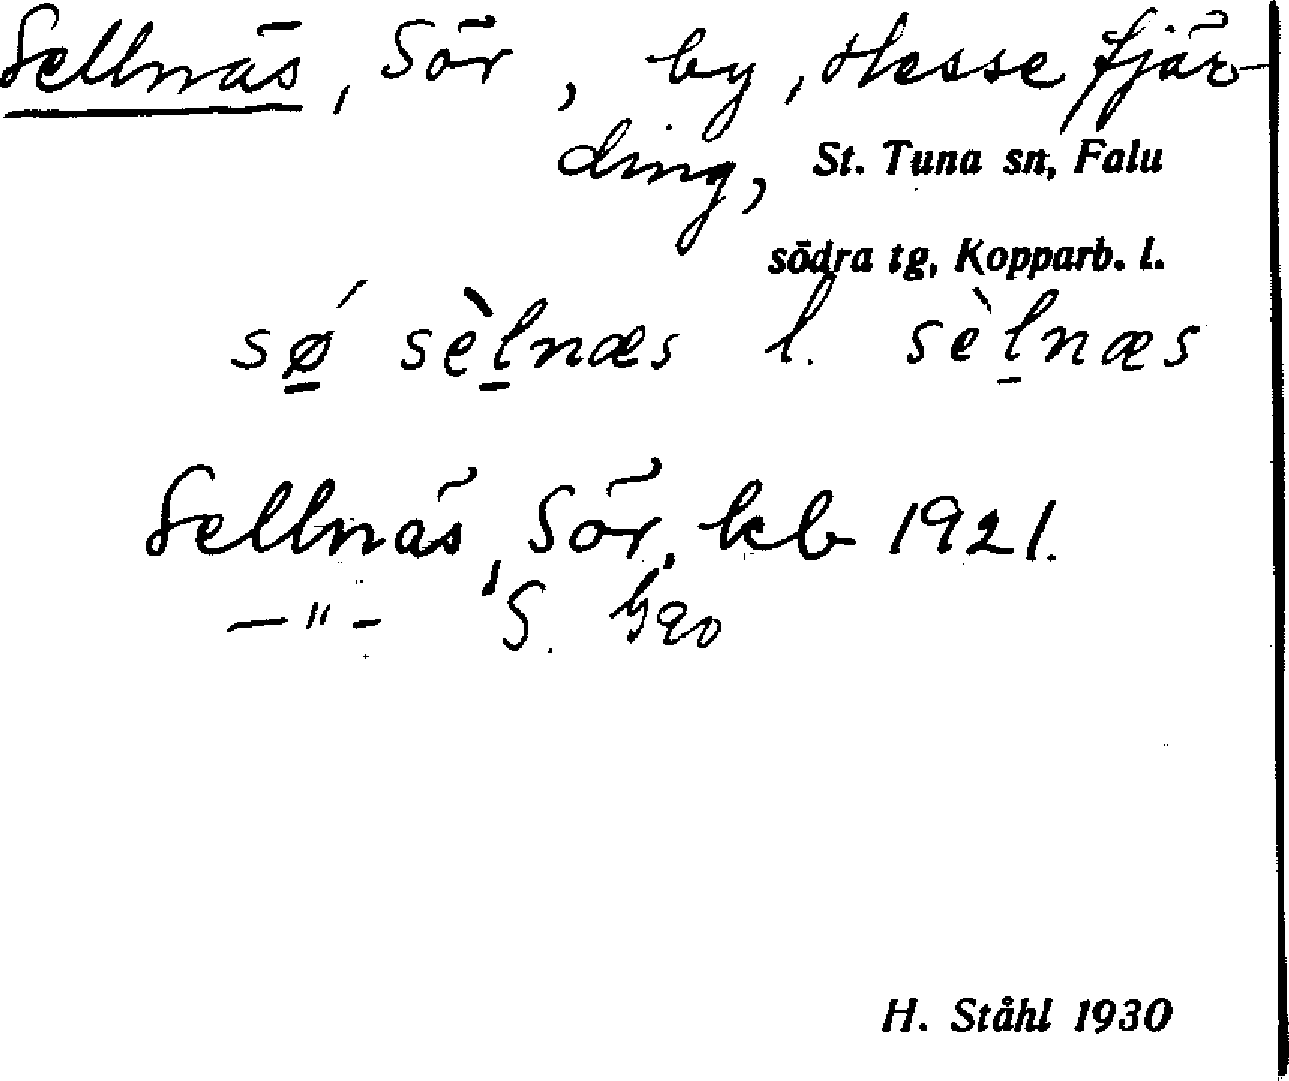 Sellnäs, Sör, by, Hesse fjär-
ding, St. Tuna sn, Falu
södra tg, Kopparb. l.
sǿ sèlnæs l. sèlnæs
Sellnäs, Sör, kb 1921.
—"— S.
H. Ståhl 1930